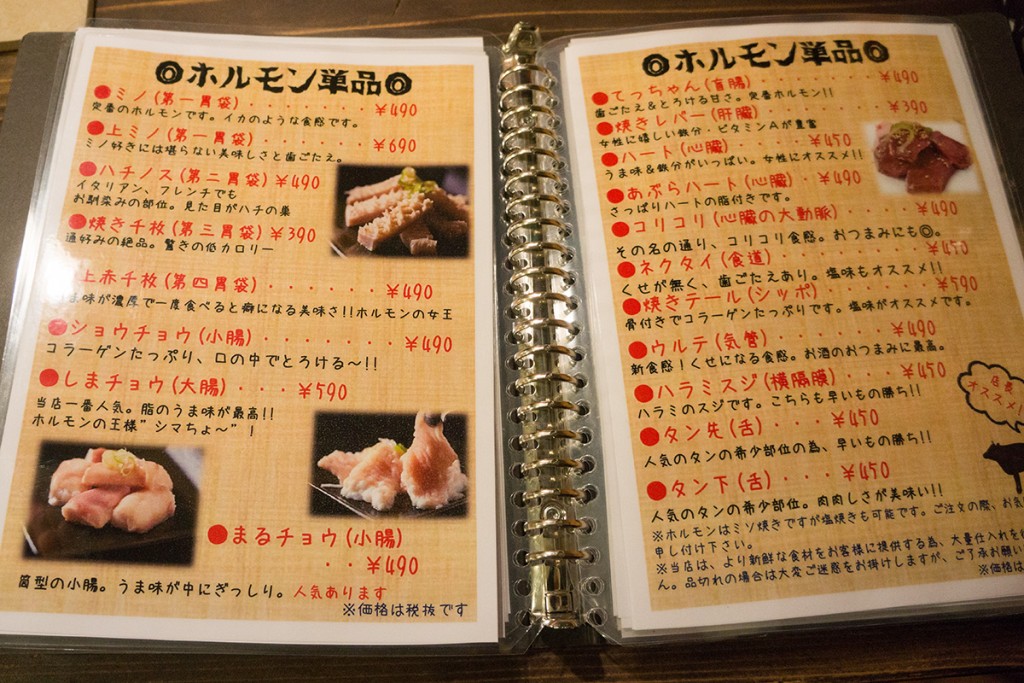 ◎ホルモン単品◎
●ミノ(第一胃袋)・・・・・・・¥490
定番のホルモンです。イカのような食感です。
●上ミノ(第一胃袋)・・・・・・¥690
ミノ好きには堪らない美味しさと歯ごたえ。
●ハチノス(第二胃袋)¥490
イタリアン、フレンチでも
お馴染みの部位。見た目がハチの巣
●焼き千枚(第三胃袋)¥390
通好みの絶品。驚きの低カロリー
上赤千枚(第四胃袋)・・・・・・¥490
味が濃厚で一度食べると癖になる美味さ!!ホルモンの女王
●ショウチョウ(小腸)・・・・・・・¥490
コラーゲンたっぷり、口の中でとろける〜!!
●しまチョウ(大腸)・・・¥590
当店一番人気。脂のうま味が最高!!
ホルモンの王様”シマちょ〜”!
●まるチョウ(小腸)
・・¥490
筒型の小腸。うま味が中にぎっしり。人気あります
※価格は税抜です
◎ホルモン単品◎
●てっちゃん(盲腸)・・・・・・・¥490
歯ごたえ&とろける甘さ。定番ホルモン!!
●焼きレバー(肝臓)・・・・・・・¥390
女性に嬉しい鉄分・ビタミンAが豊富
●ハート(心臓)・・・・・¥450
うま味&鉄分がいっぱい。女性にオススメ!!
●あぶらハート(心臓)・・¥490
さっぱりハートの脂付きです。
●コリコリ(心臓の大動脈)・・・・¥490
その名の通り、コリコリ食感。おつまみにも◎。
●ネクタイ(食道)・・・・・・・¥450
くせが無く、歯ごたえあり。塩味もオススメ!!
●焼きテール(シッポ)・・・・・・¥590
骨付きでコラーゲンたっぷりです。塩味がオススメです。
●ウルテ(気管)・・・・・・¥490
新食感!くせになる食感。お酒のおつまみに最高。
●ハラミスジ(横隔膜)・・・¥450
ハラミのスジです。こちらも早いもの勝ち!!
●タン先(舌)・・・¥450
人気のタンの希少部位の為、早いもの勝ち!!
●タン下(舌)・・・¥450
人気のタンの希少部位。肉肉しさが美味い!!
オススメ!
※ホルモンはミソ焼きですが塩焼きも可能です。ご注文の際、お気
申し付け下さい。
※当店は、より新鮮な食材をお客様に提供する為、大量仕入れを
ん。品切れの場合は大変ご迷惑をお掛けしますが、ご了承お願い
※価格は